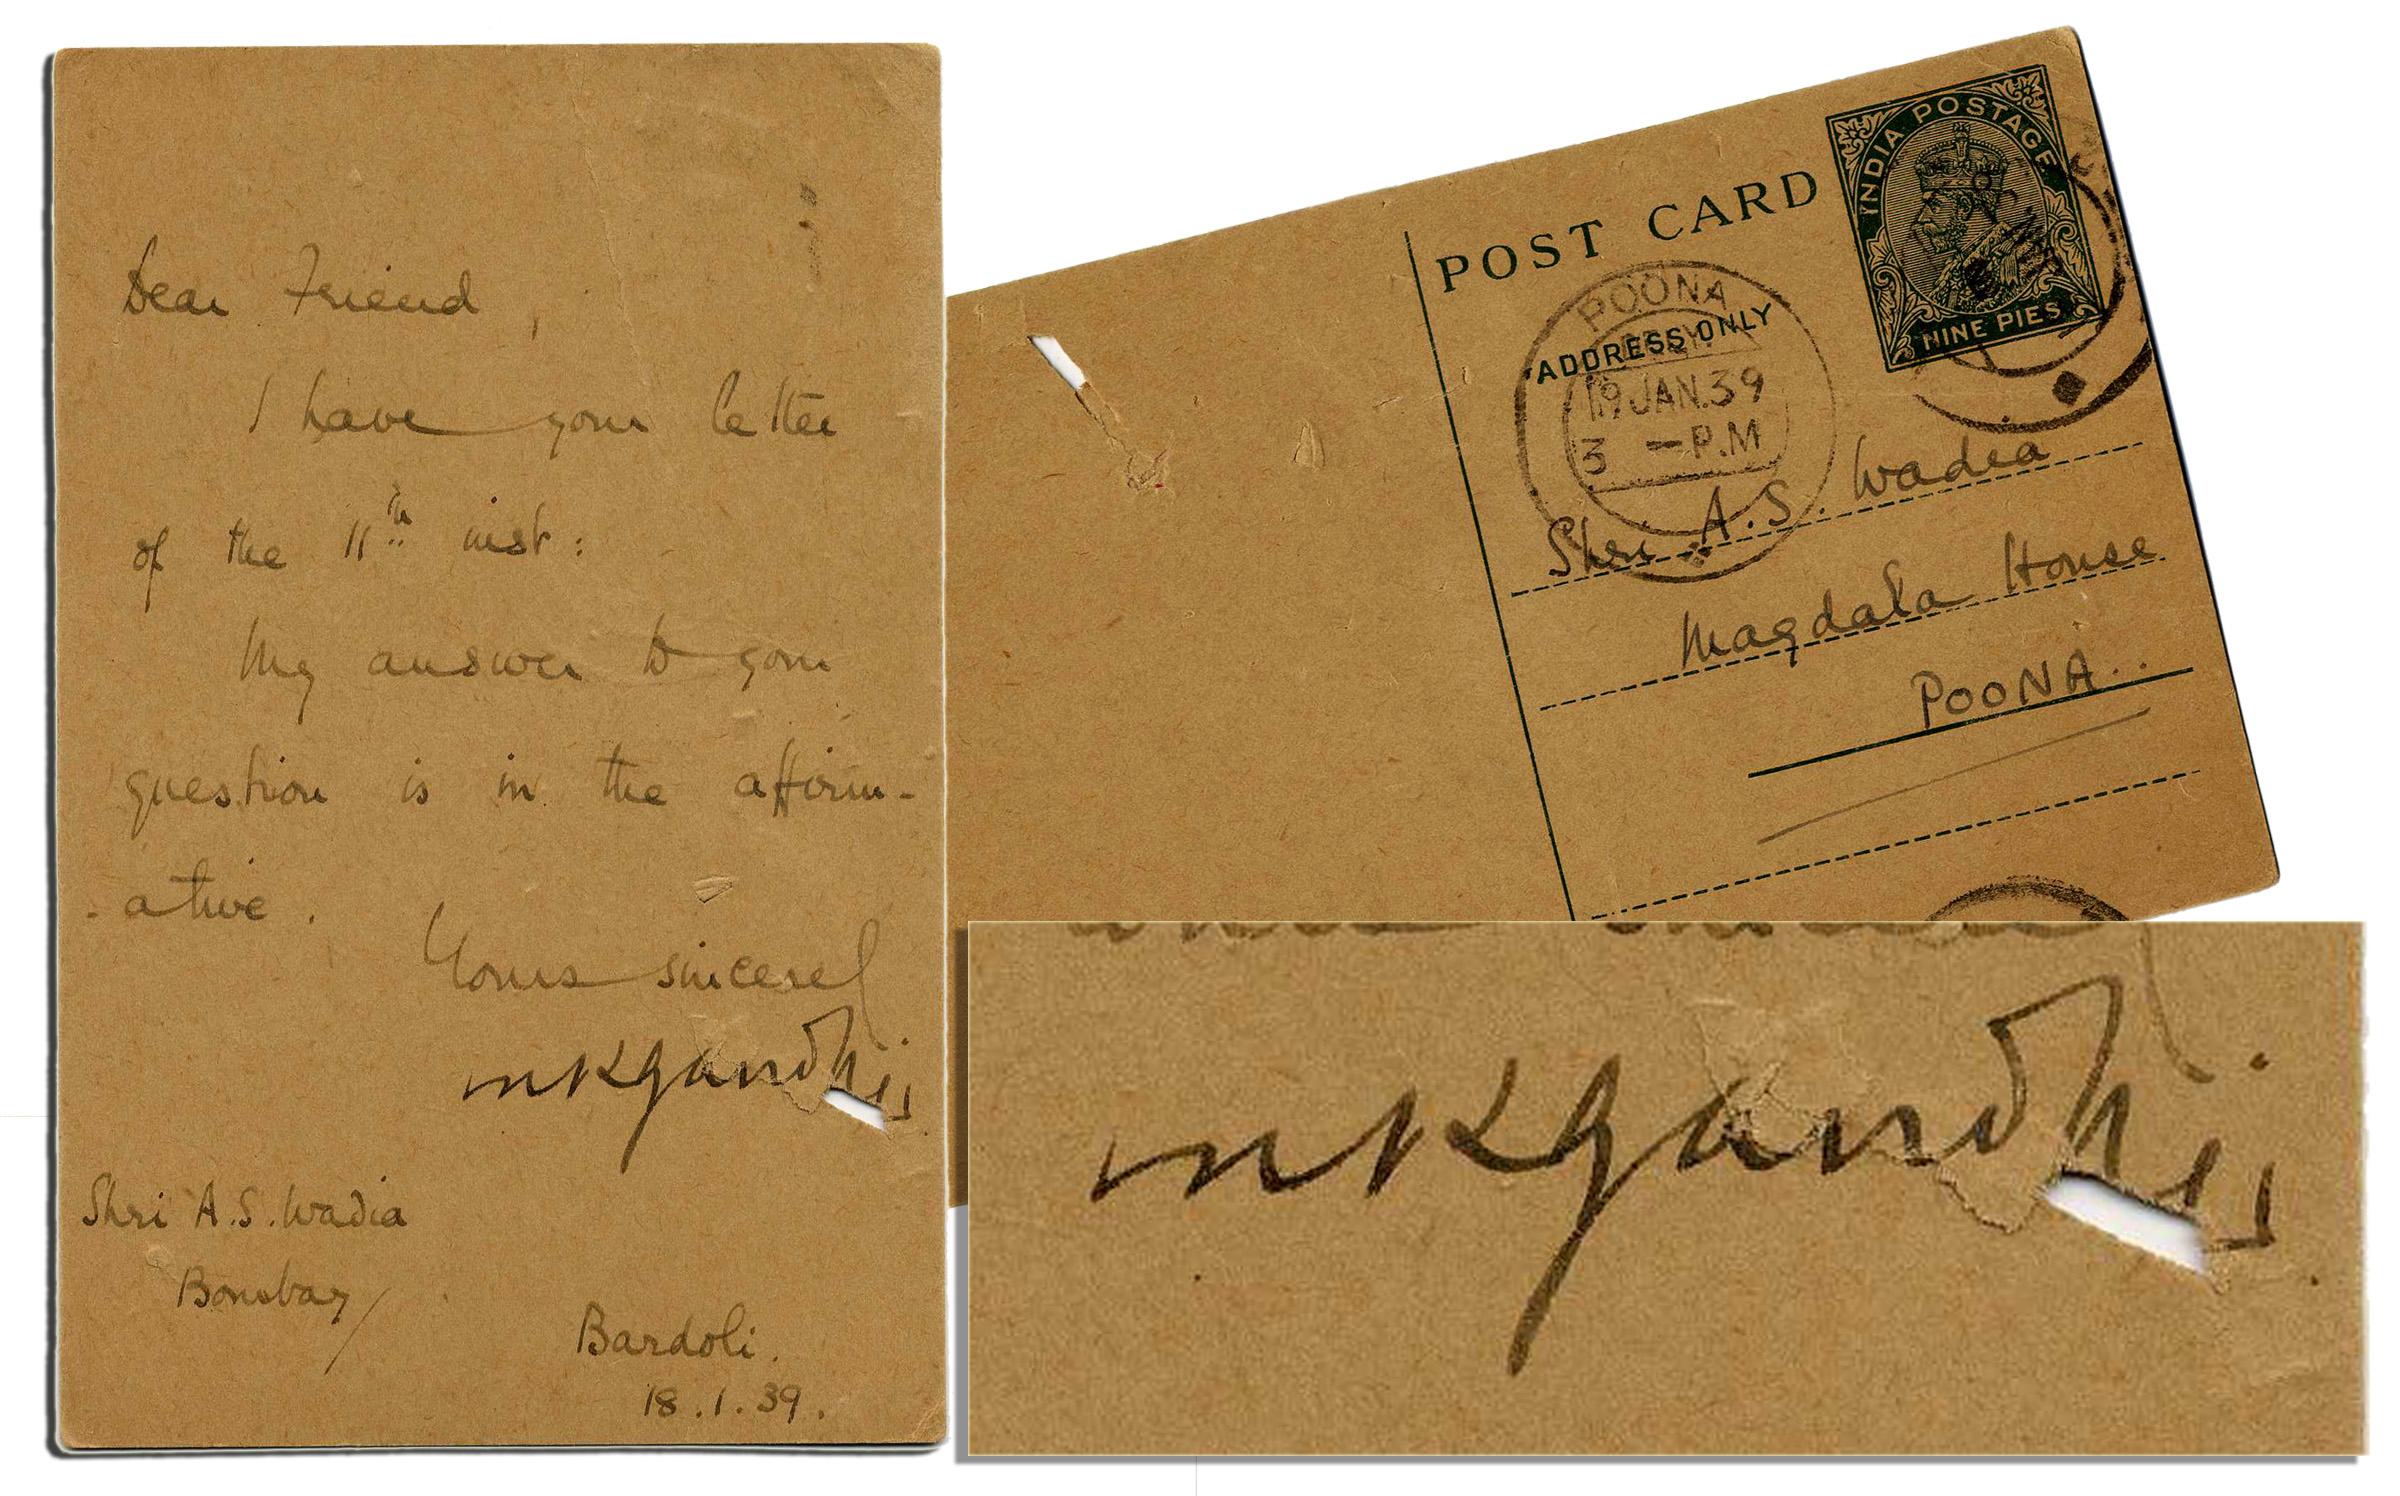 Dear Friend,
I have your letter
of the 11th inst:
My answer to your
question is in the affirm-
-ative.
Yours sincerel
mkgandhi
Shri A.S. Wadia
Bombay/
Bardoli.
18.1.39.
POST CARD
ADDRESS ONLY
INDIA POSTAGE
NINE PIES
POONA
19 JAN.39
3 - P.M
Shri A.S. Wadia
Magdala House
POONA..
mkgandhi